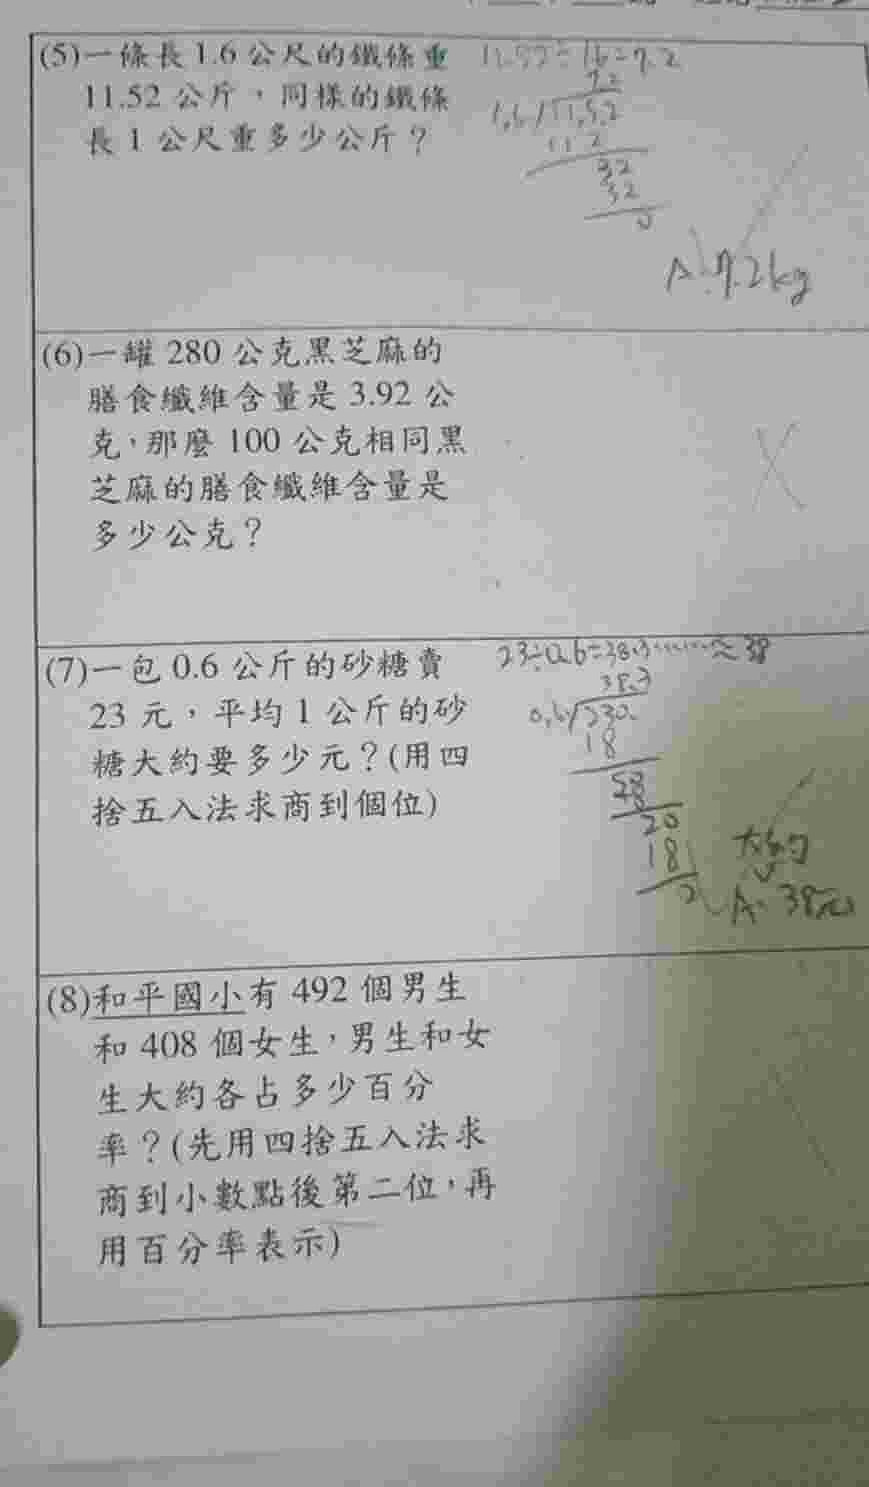 (5)一條長 1.6 公尺的鐵條重
11.52 公斤，同樣的鐵條
長 1 公尺重多少公斤？
11.52÷1.6=7.2
7.2
1.6 11.5.2
11 2
32
32
0
A:7.2kg
(6)一罐 280 公克黑芝麻的
膳食纖維含量是 3.92 公
克，那麼 100 公克相同黑
芝麻的膳食纖維含量是
多少公克？
(7)一包 0.6 公斤的砂糖賣
23 元，平均 1 公斤的砂
糖大約要多少元？(用四
捨五入法求商到個位)
23÷0.6=38.3……≈38
38.3
0.6 230.
18
20
18
2
大約
A: 38元
(8)和平國小有 492 個男生
和 408 個女生，男生和女
生大約各占多少百分
率？(先用四捨五入法求
商到小數點後第二位，再
用百分率表示)